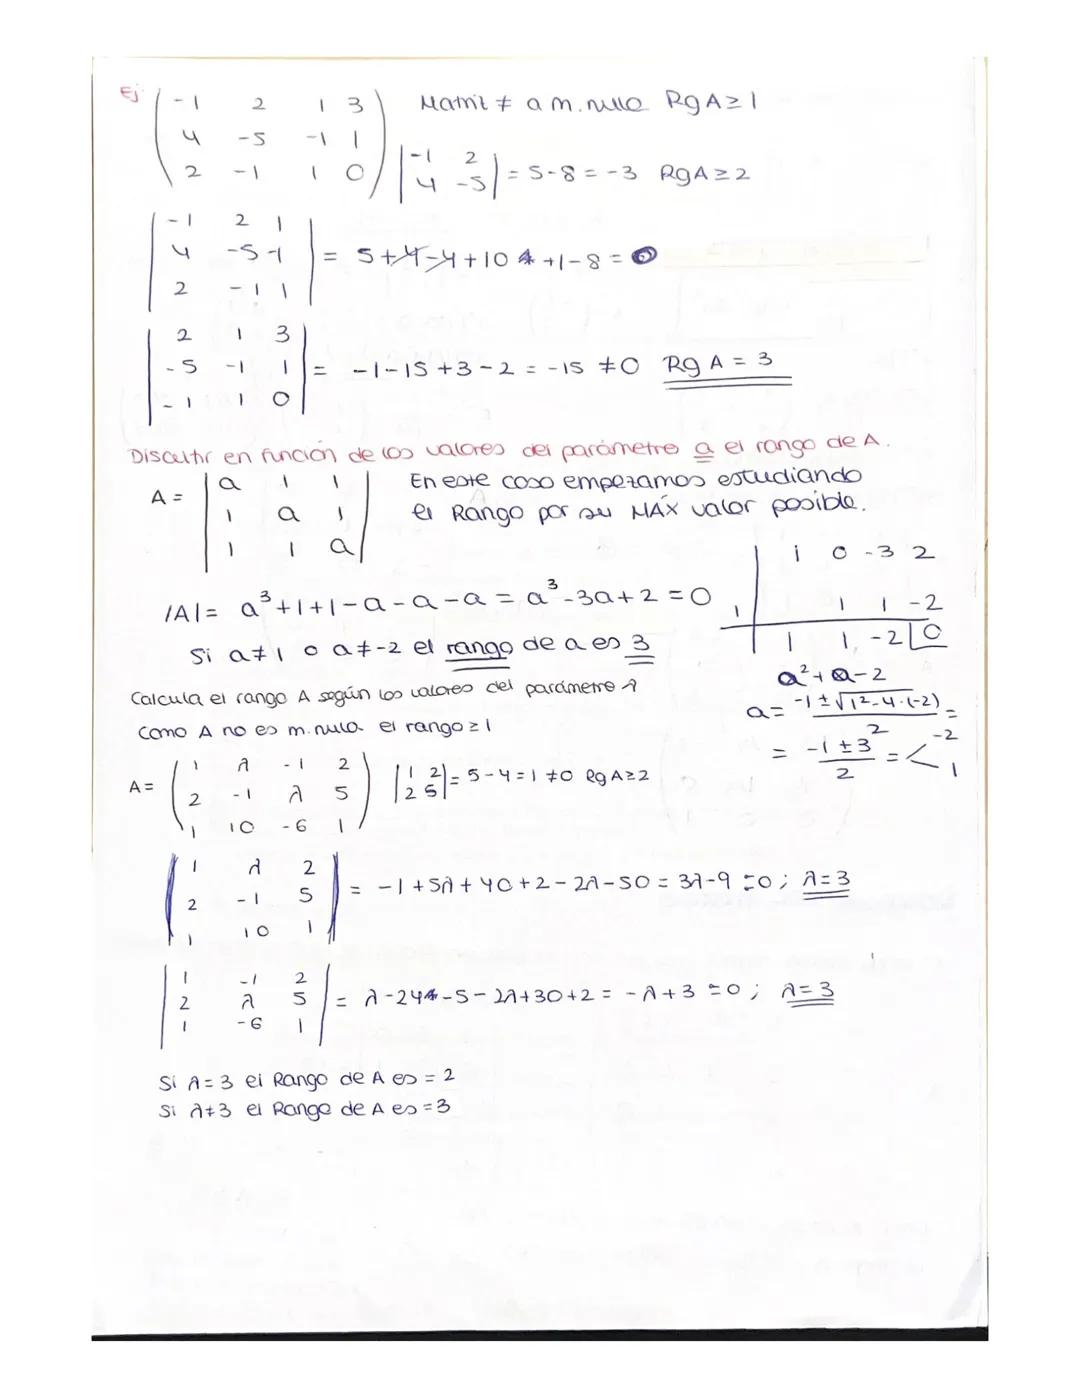 Ej
-1 2 1 3 Matriz ≠ a m. nula RgA ≥ 1
4 -5 -1 1
2 -1 1 0
|-1 2| = 5-8 = -3 RgA ≥ 2
|4 -5|
-1 2 1
4 -5 -1 = 5+4-4+10+1-8 = 0
2 -1 1
2 1 3
-5 -1 1 = -1-15+3-2 = -15 ≠0 Rg A = 3
-1 1 0
Discutir en función de los valores del parámetro a el rango de A.
A = a 1 1
1 a 1
1 1 a
En este caso empezamos estudiando
el Rango por su MÁX valor posible.
|A| = a³+1+1-a-a-a = a³-3a+2 = 0
Si a≠1 o a≠-2 el rango de a es 3
1 0 -3 2
1 1 1 -2
1 1 -2 0
a²+a-2
a = -1±√1²-4·(-2) / 2 =
= -1±3 / 2 = < -2
1
Calcula el rango A según los valores del parámetro λ
Como A no es m. nula el rango ≥ 1
A = 1 λ -1 2
2 -1 λ 5
1 10 -6 1
|1 2| = 5-4 = 1 ≠0 RgA≥2
|2 5|
1 λ 2
2 -1 5 = -1+5λ+40+2-2λ-50 = 3λ-9 =0; λ=3
1 10 1
1 -1 2
2 λ 5 = λ-24-5-2λ+30+2 = -λ+3 =0; λ=3
1 -6 1
Si λ=3 el Rango de A es = 2
Si λ≠3 el Rango de A es =3